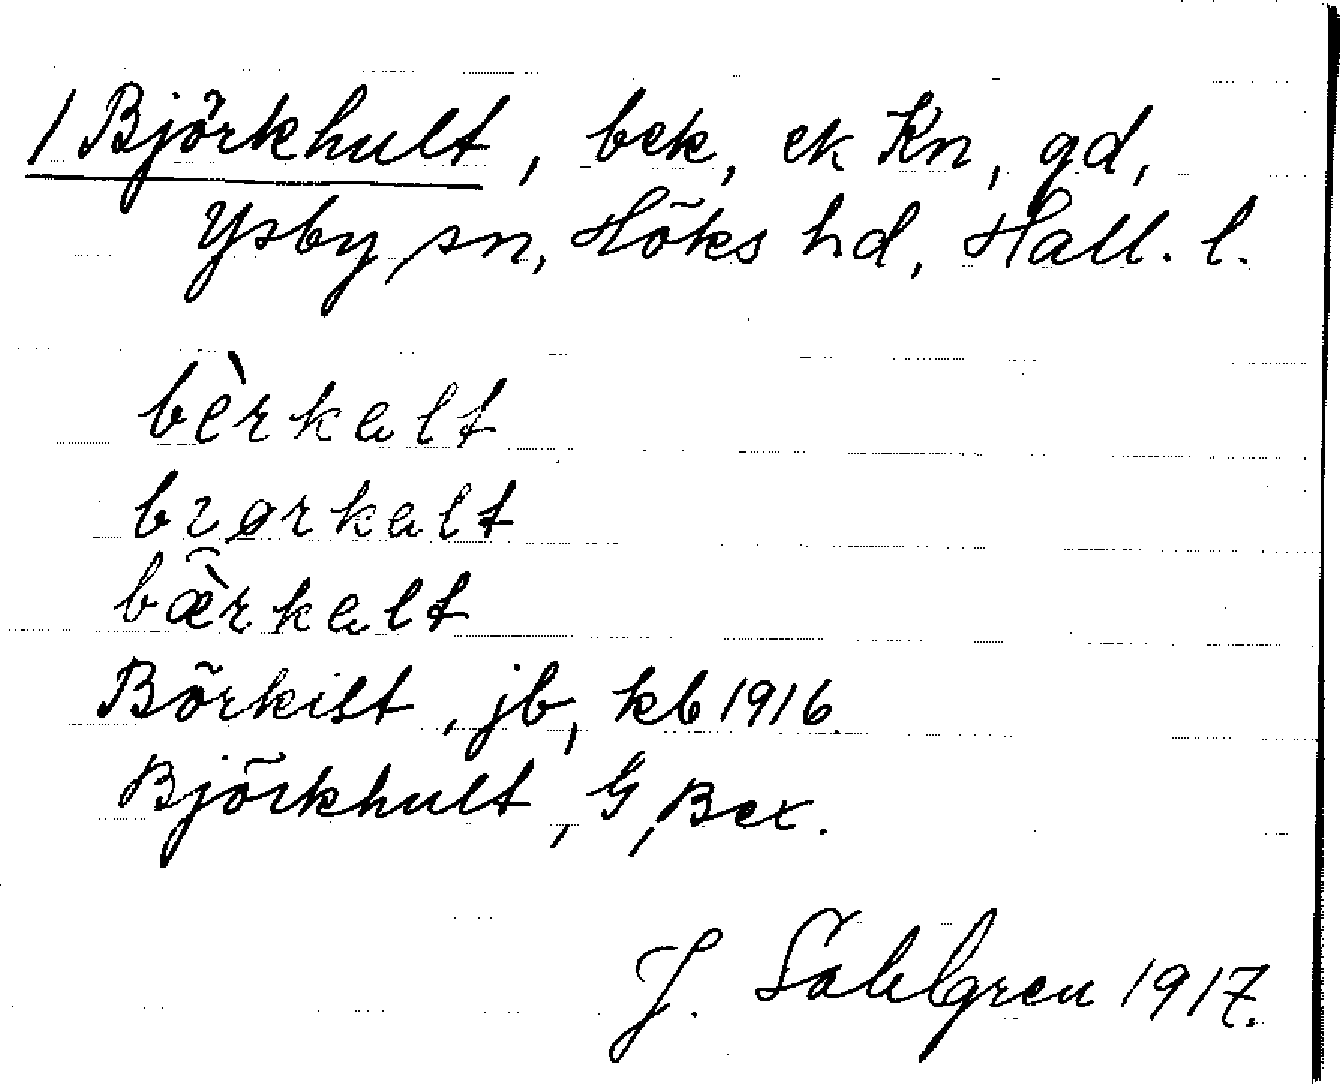 1 Björkhult, bek, ek Kn, gd,
Ysby sn, Höks hd, Hall. l.
bèrkalt
bɪørkalt
bæ̀rkalt
Börkilt, jb, kb 1916.
Björkhult, G, Bex.
J. Sahlgren 1917.